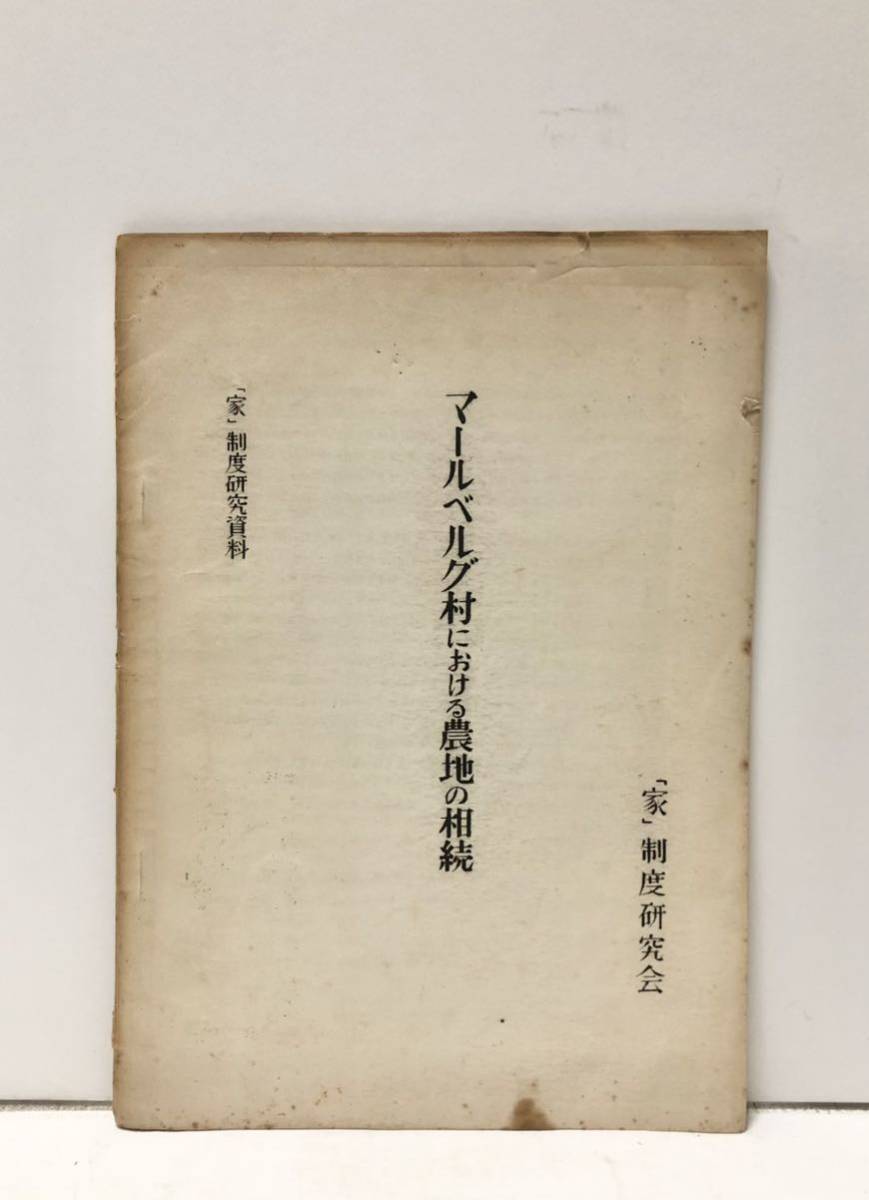 「家」制度研究会
マールベルグ村における農地の相続
「家」制度研究資料